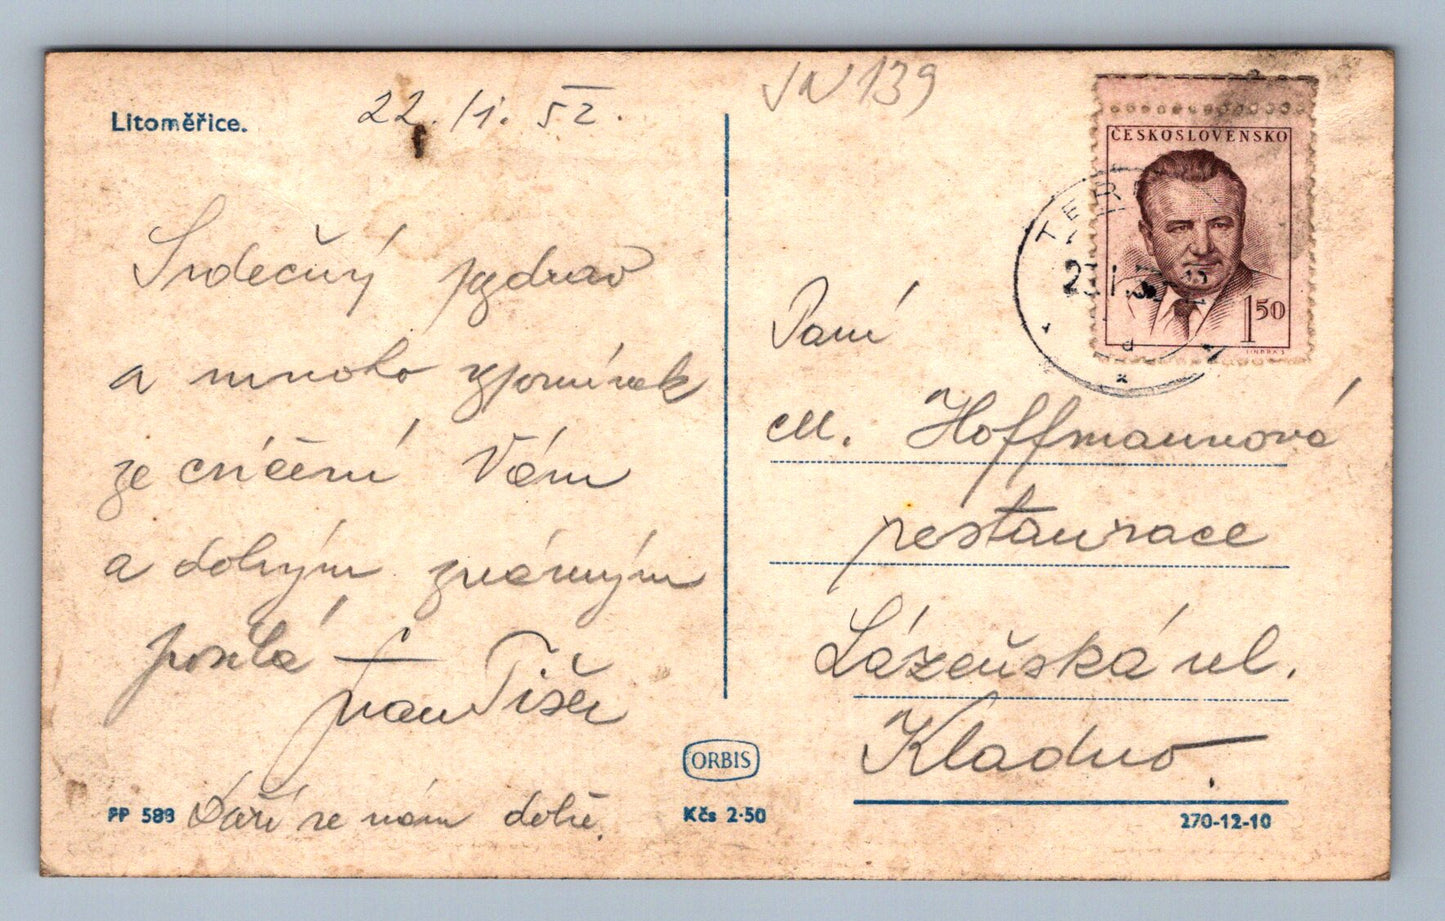 Litoměřice.
22./1. 52.
Srdečný pozdrav
a mnoho vzpomínek
ze cvičení Vám
a dobrým známým
posílá
fran Tišer
Daří se nám dobře.
PP 588
ORBIS
Kčs 2·50
270-12-10
JN 139
ČESKOSLOVENSKO
1 50
TER
23.I.52
Paní
M. Hoffmannová
restaurace
Lázeňská ul.
Kladno.